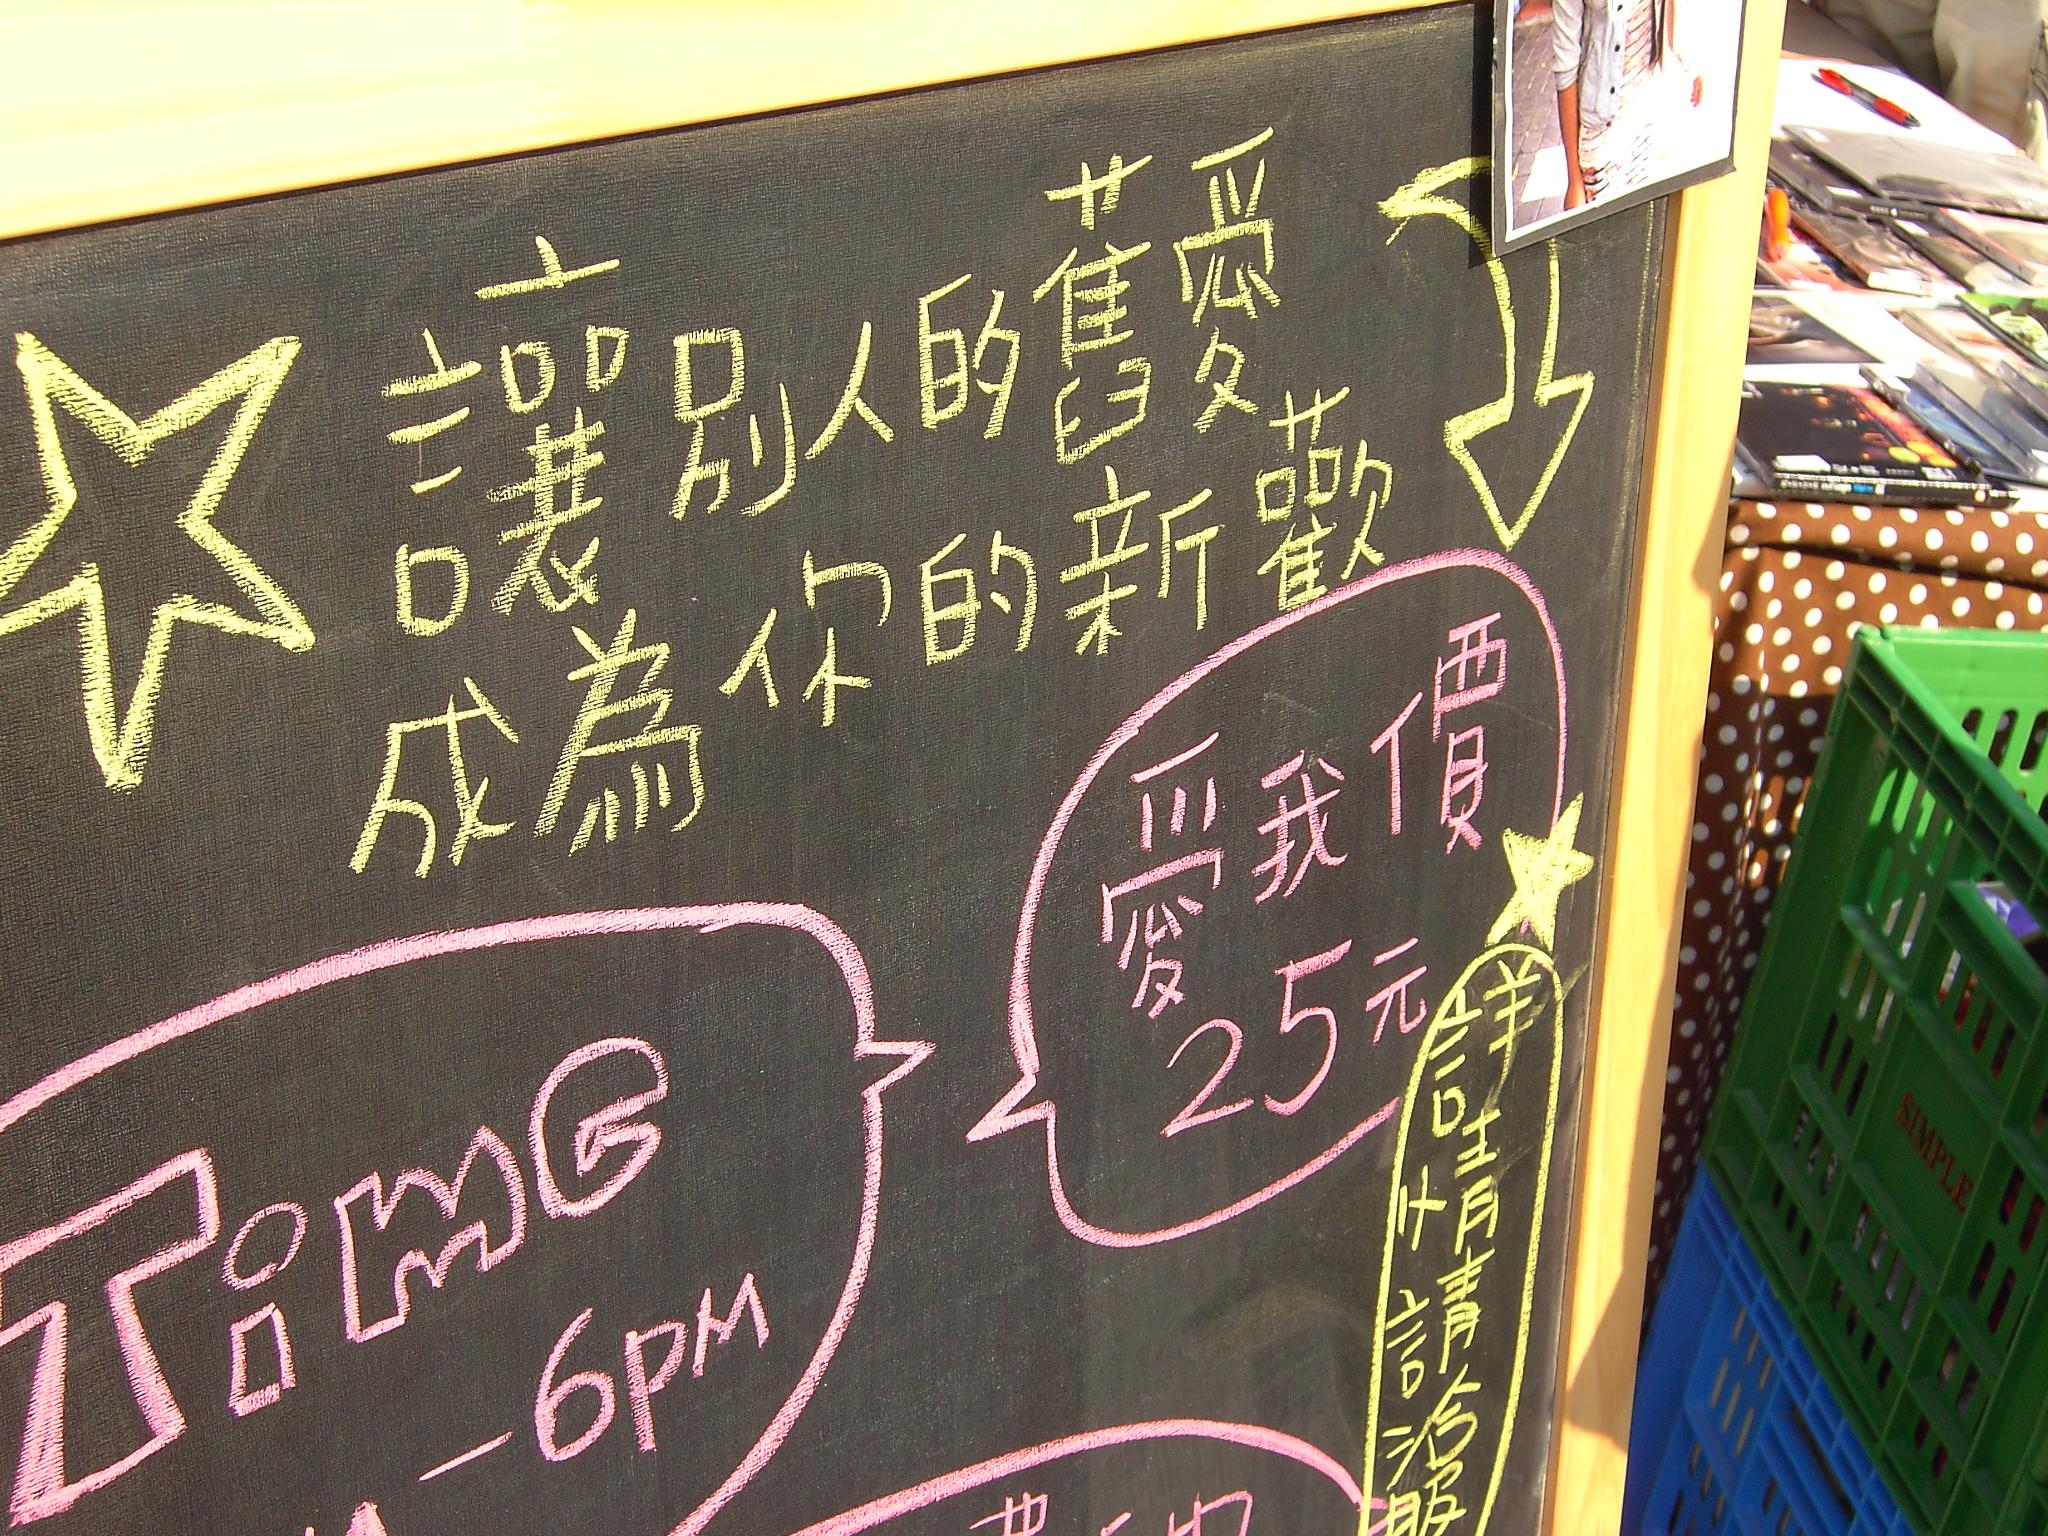 讓別人的舊愛
成為你的新歡
愛我價
25元
TimE
-6PM
詳情請洽服
SIMPLE